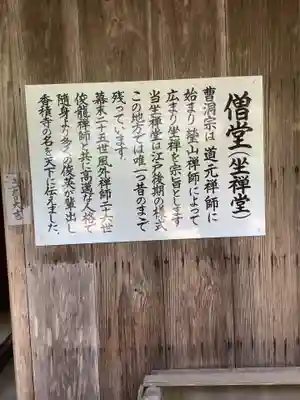 僧堂(坐禅堂)
曹洞宗は 道元禅師に
始まり 瑩山禅師によって
広まり坐禅を宗旨とします
当坐禅堂は江戸後期の様式
この地方では唯一つ昔のまゝで
残っています。
幕末二十五世風外禅師二十六世
俊龍禅師と共に高邁な人格で
随身より多くの俊英が輩出し
香積寺の名を天下に伝えました。